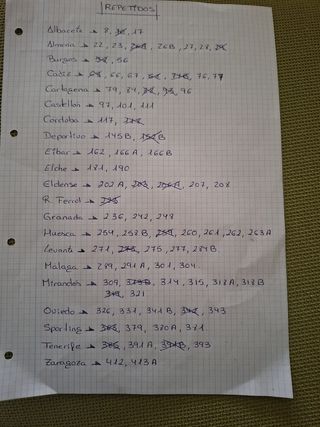 REPETIDOS
Albacete → 8, 17
Almeria → 22, 23, 26B, 27, 28
Burgos → 56
Cadiz → 66, 67, 76, 77
Cartagena → 79, 84, 96
Castellón → 97, 101, 111
Cordoba → 117
Deportivo → 145B
Eibar → 162, 166A, 166B
Elche → 181, 190
Eldense → 202A, 207, 208
R. Ferrol →
Granada → 236, 242, 248
Huesca → 254, 258B, 260, 261, 262, 263A
Levante → 271, 275, 277, 284B
Malaga → 289, 291A, 301, 304
Mirandes → 309, 314, 315, 318A, 318B
321
Oviedo → 326, 331, 341B, 343
Sporting → 379, 380A, 381
Tenerife → 391A, 393
Zaragoza → 412, 413A